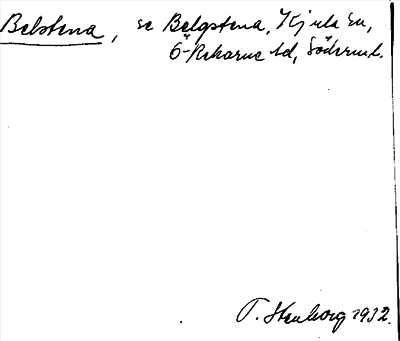 Belstena, se Bälgstena, Kjula sn,
Ö-Rekarne hd, Söderml.
T. Stenborg 1932.